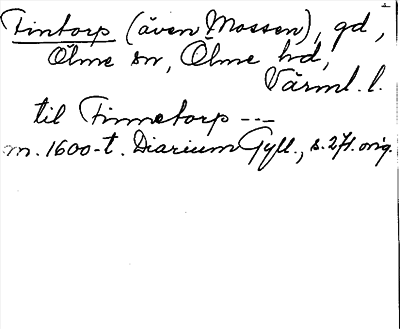 Fintorp (även Mossen), gd,
Ölme sn, Ölme hd,
Värml. l.
til Finnetorp ---
m. 1600-t. Diarium Gyll., s. 271. orig.